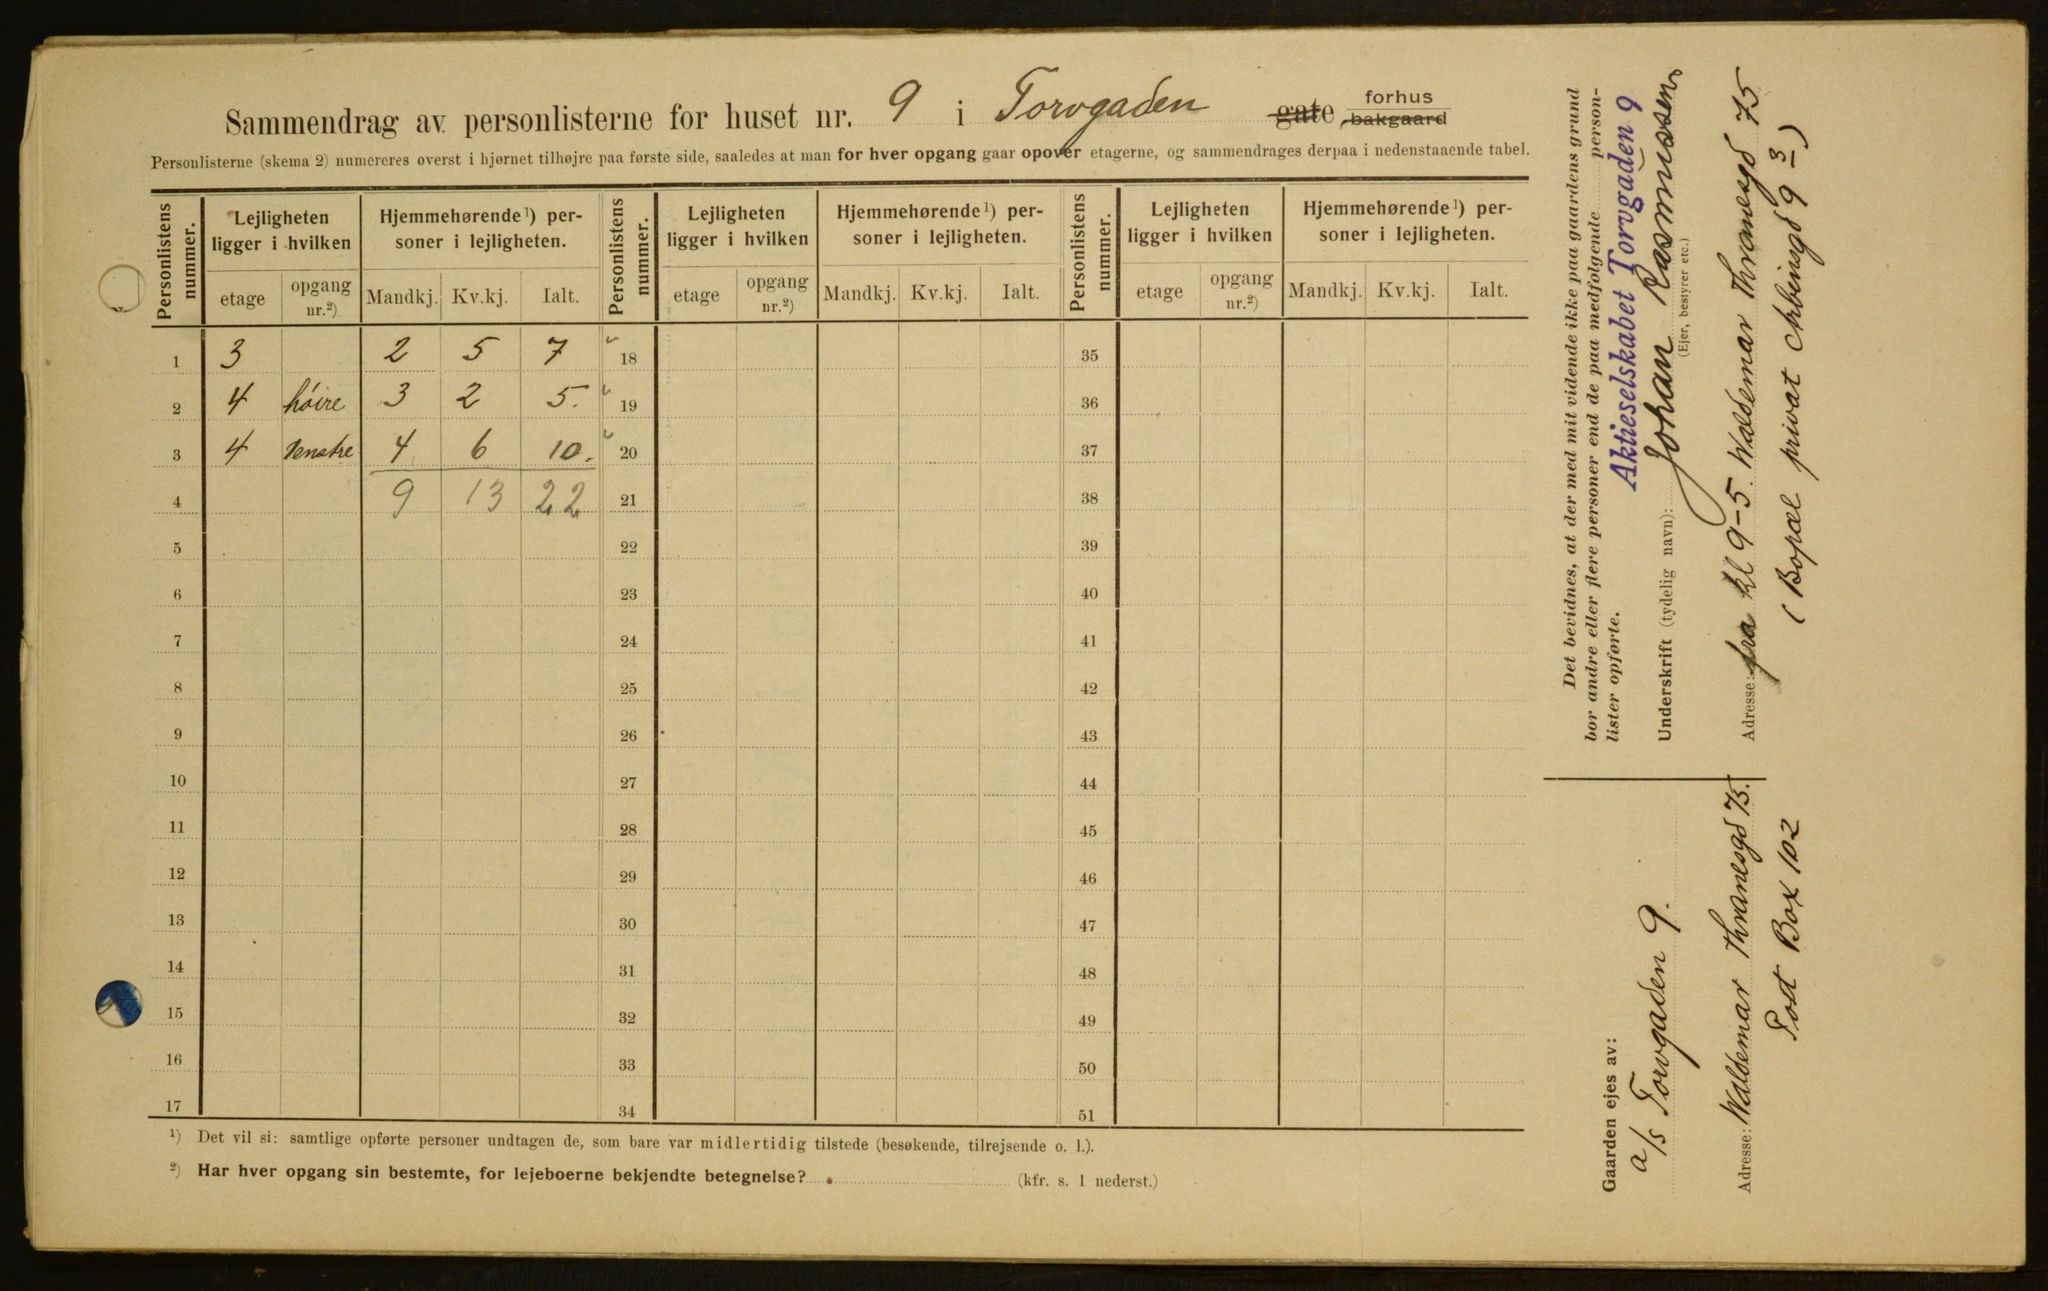 Sammendrag av personlisterne for huset nr. 9 i Torvgaden gate, forhus bakgaard
Personlisterne (skema 2) numereres øverst i hjørnet tilhøjre paa første side, saaledes at man for hver opgang gaar opover etagerne, og sammendrages derpaa i nedenstaaende tabel.
Personlistens nummer. Lejligheten ligger i hvilken Hjemmehørende¹) personer i lejligheten. Personlistens nummer. Lejligheten ligger i hvilken Hjemmehørende¹) personer i lejligheten. Personlistens nummer. Lejligheten ligger i hvilken Hjemmehørende¹) personer i lejligheten.
etage opgang nr.²) Mandkj. Kv.kj. Ialt. etage opgang nr.²) Mandkj. Kv.kj. Ialt. etage opgang nr.²) Mandkj. Kv.kj. Ialt.
1 3 2 5 7 18 35
2 4 høire 3 2 5. 19 36
3 4 Venstre 4 6 10. 20 37
4 9 13 22 21 38
5 22 39
6 23 40
7 24 41
8 25 42
9 26 43
10 27 44
11 28 45
12 29 46
13 30 47
14 31 48
15 32 49
16 33 50
17 34 51
¹) Det vil si: samtlige opførte personer undtagen de, som bare var midlertidig tilstede (besøkende, tilrejsende o. l.).
²) Har hver opgang sin bestemte, for lejeboerne bekjendte betegnelse? (kfr. s. 1 nederst.)
Det bevidnes, at der med mit vidende ikke paa gaardens grund
bor andre eller flere personer end de paa medfølgende personlister opførte.
Aktieselskabet Torvgaden 9
Underskrift (tydelig navn): Johan Rasmussen
(Ejer, bestyrer etc.)
Adresse: fra kl 9-5. Waldemar Thranesgd 75
(Bopæl privat Arbinsgd 9 3)
Gaarden ejes av:
a/s Torvgaden 9.
Adresse: Waldemar Thranesgd 75.
Post Box 102